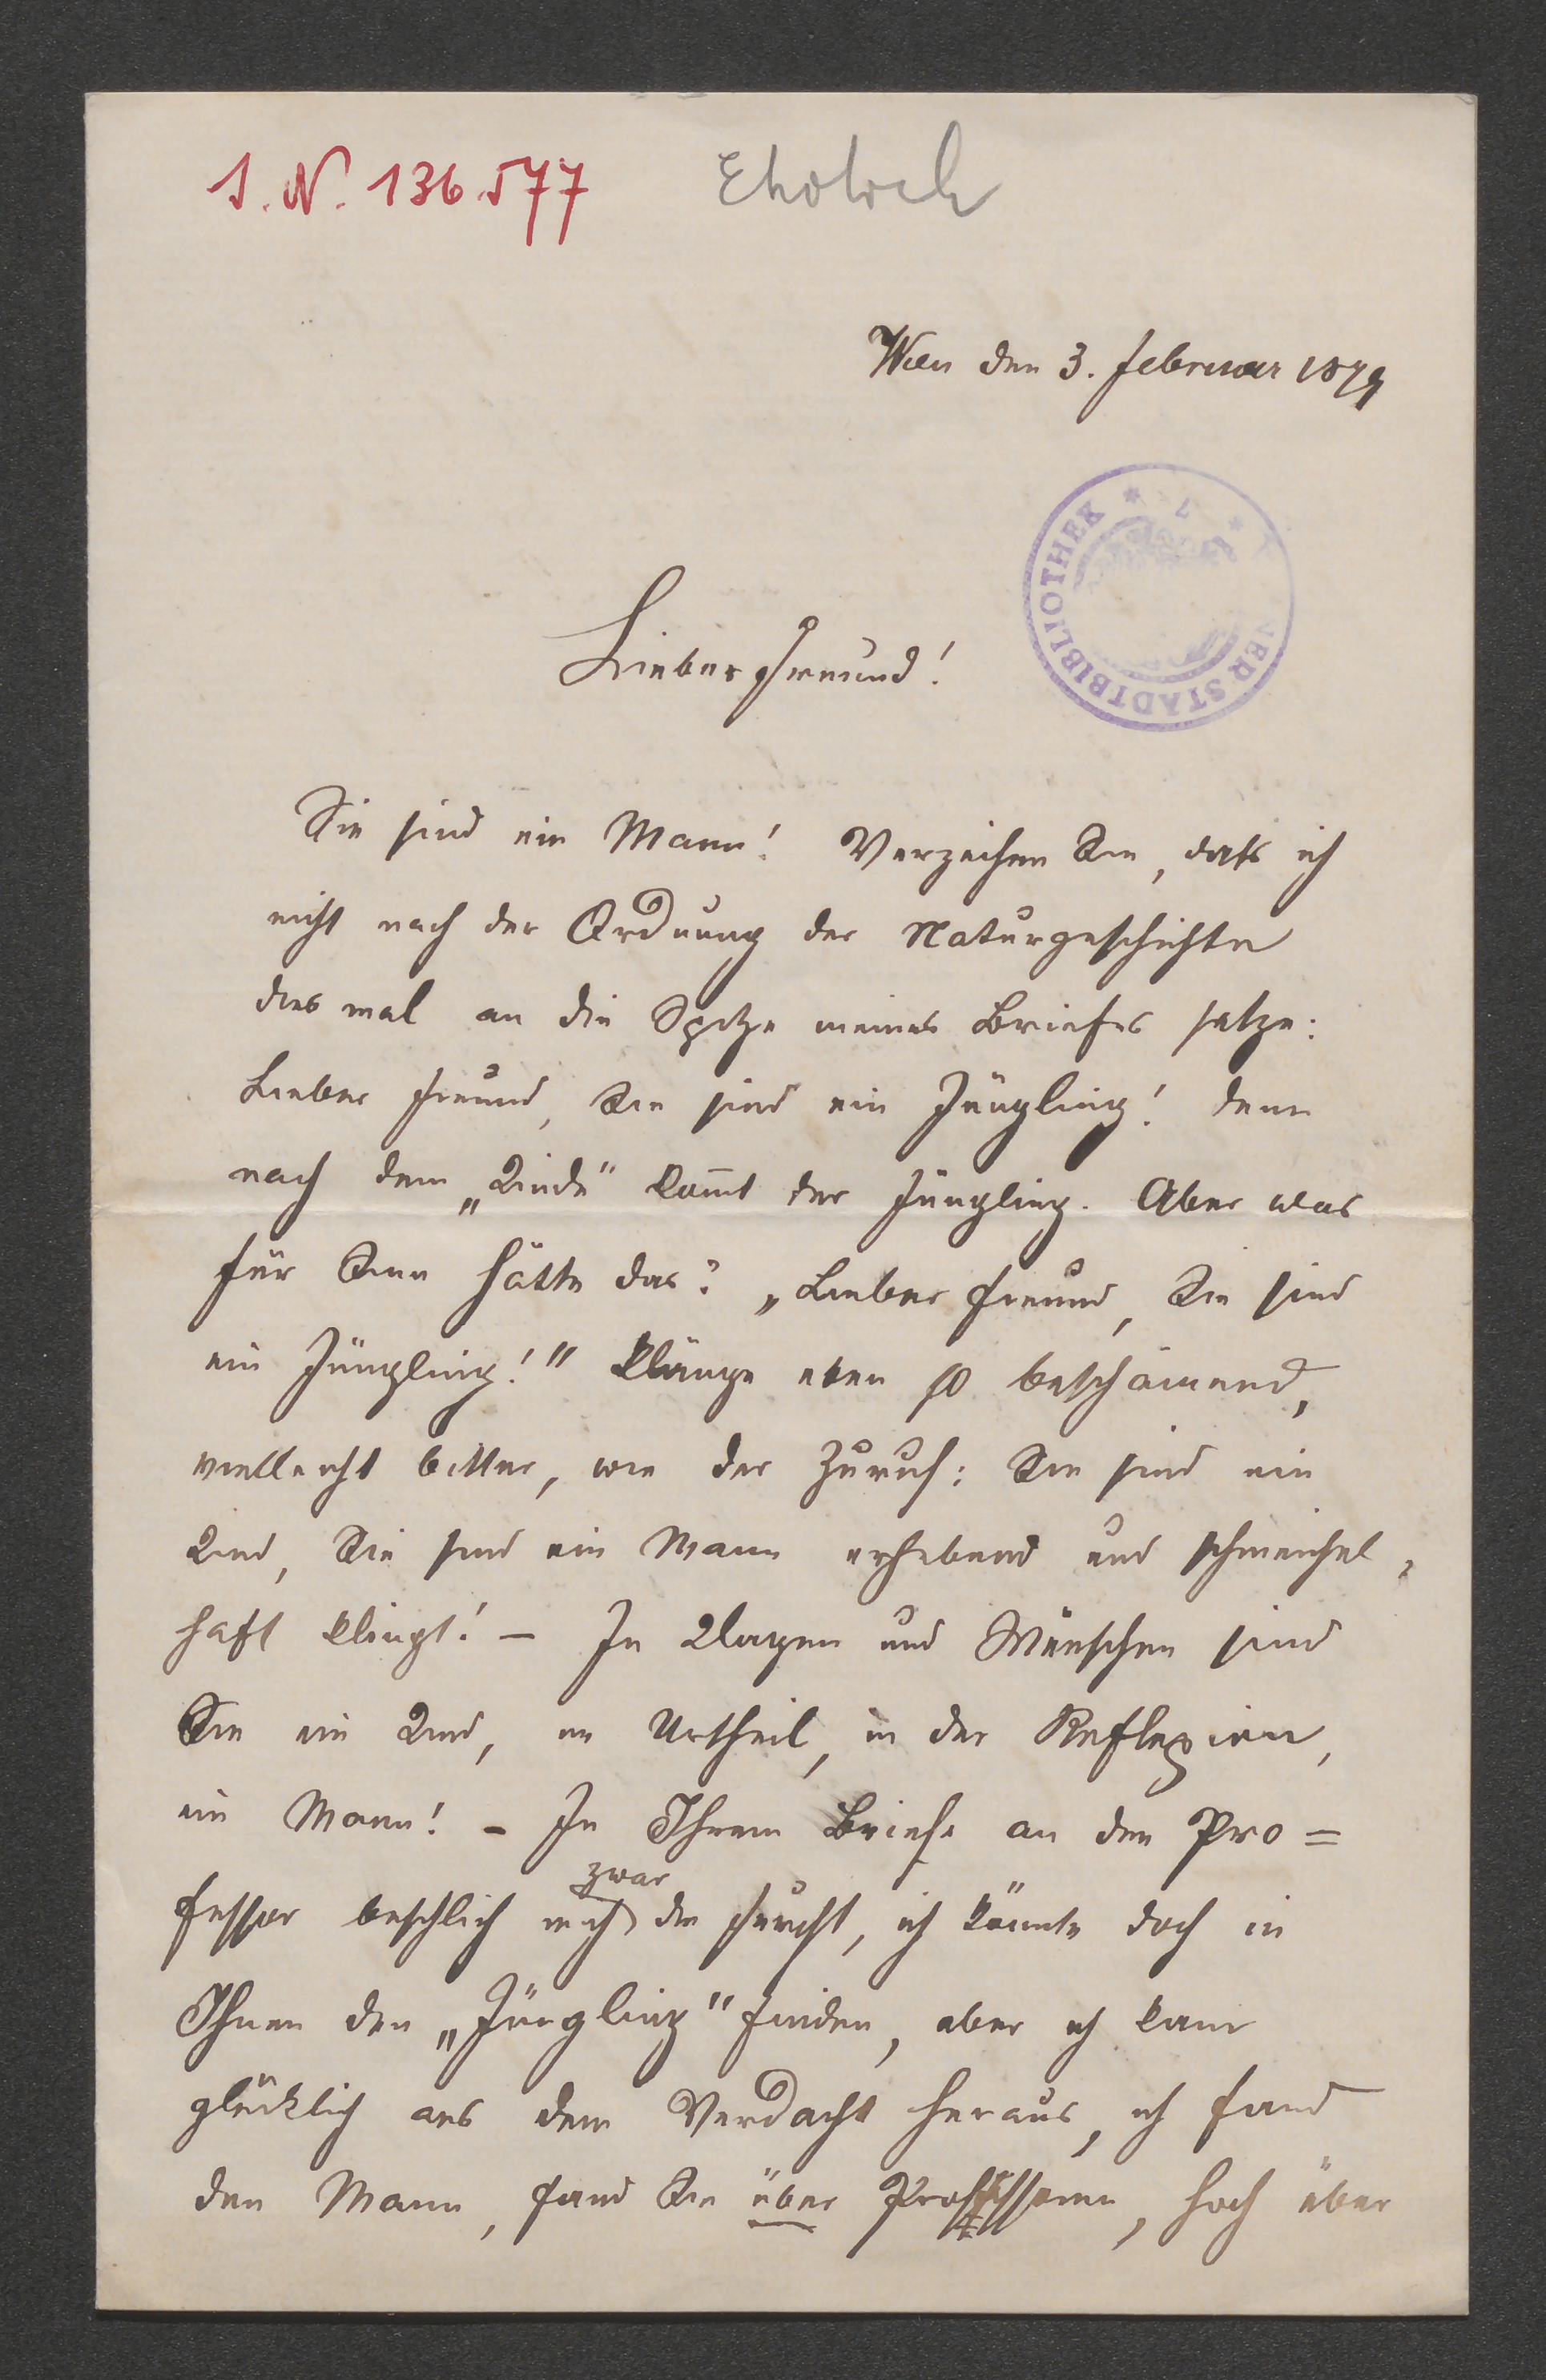 I. N. 136.577
Wien den 3. Februar 1879
STADTBIBLIOTHEK
Lieber Freund!
Sie sind ein Mann! Verzeihen Sie, daß ich
nicht nach der Ordnung der Naturgeschichte
dies mal an die Spitze meines Briefes setze:
Lieber Freund, Sie sind ein Jüngling! denn
nach dem „Kinde" kom̅t der Jüngling. Aber was
für Sinn hätte das? „Lieber Freund, Sie sind
ein Jüngling!" klänge eben so beschämend,
vielleicht bitter, wie der Zuruf: Sie sind ein
Kind, Sie sind ein Mann erhebend und schmeichel-
haft klingt! – In Klagen und Wünschen sind
Sie ein Kind, im Urtheil, in der Reflexion,
ein Mann! – In Ihrem Briefe an den Pro=
zwar
fessor beschlich mich die Furcht, ich könnte doch in
Ihnen den „Jüngling" finden, aber ich kam
glücklich aus dem Verdacht heraus, ich fand
den Mann, fand Sie über Professoren, hoch über